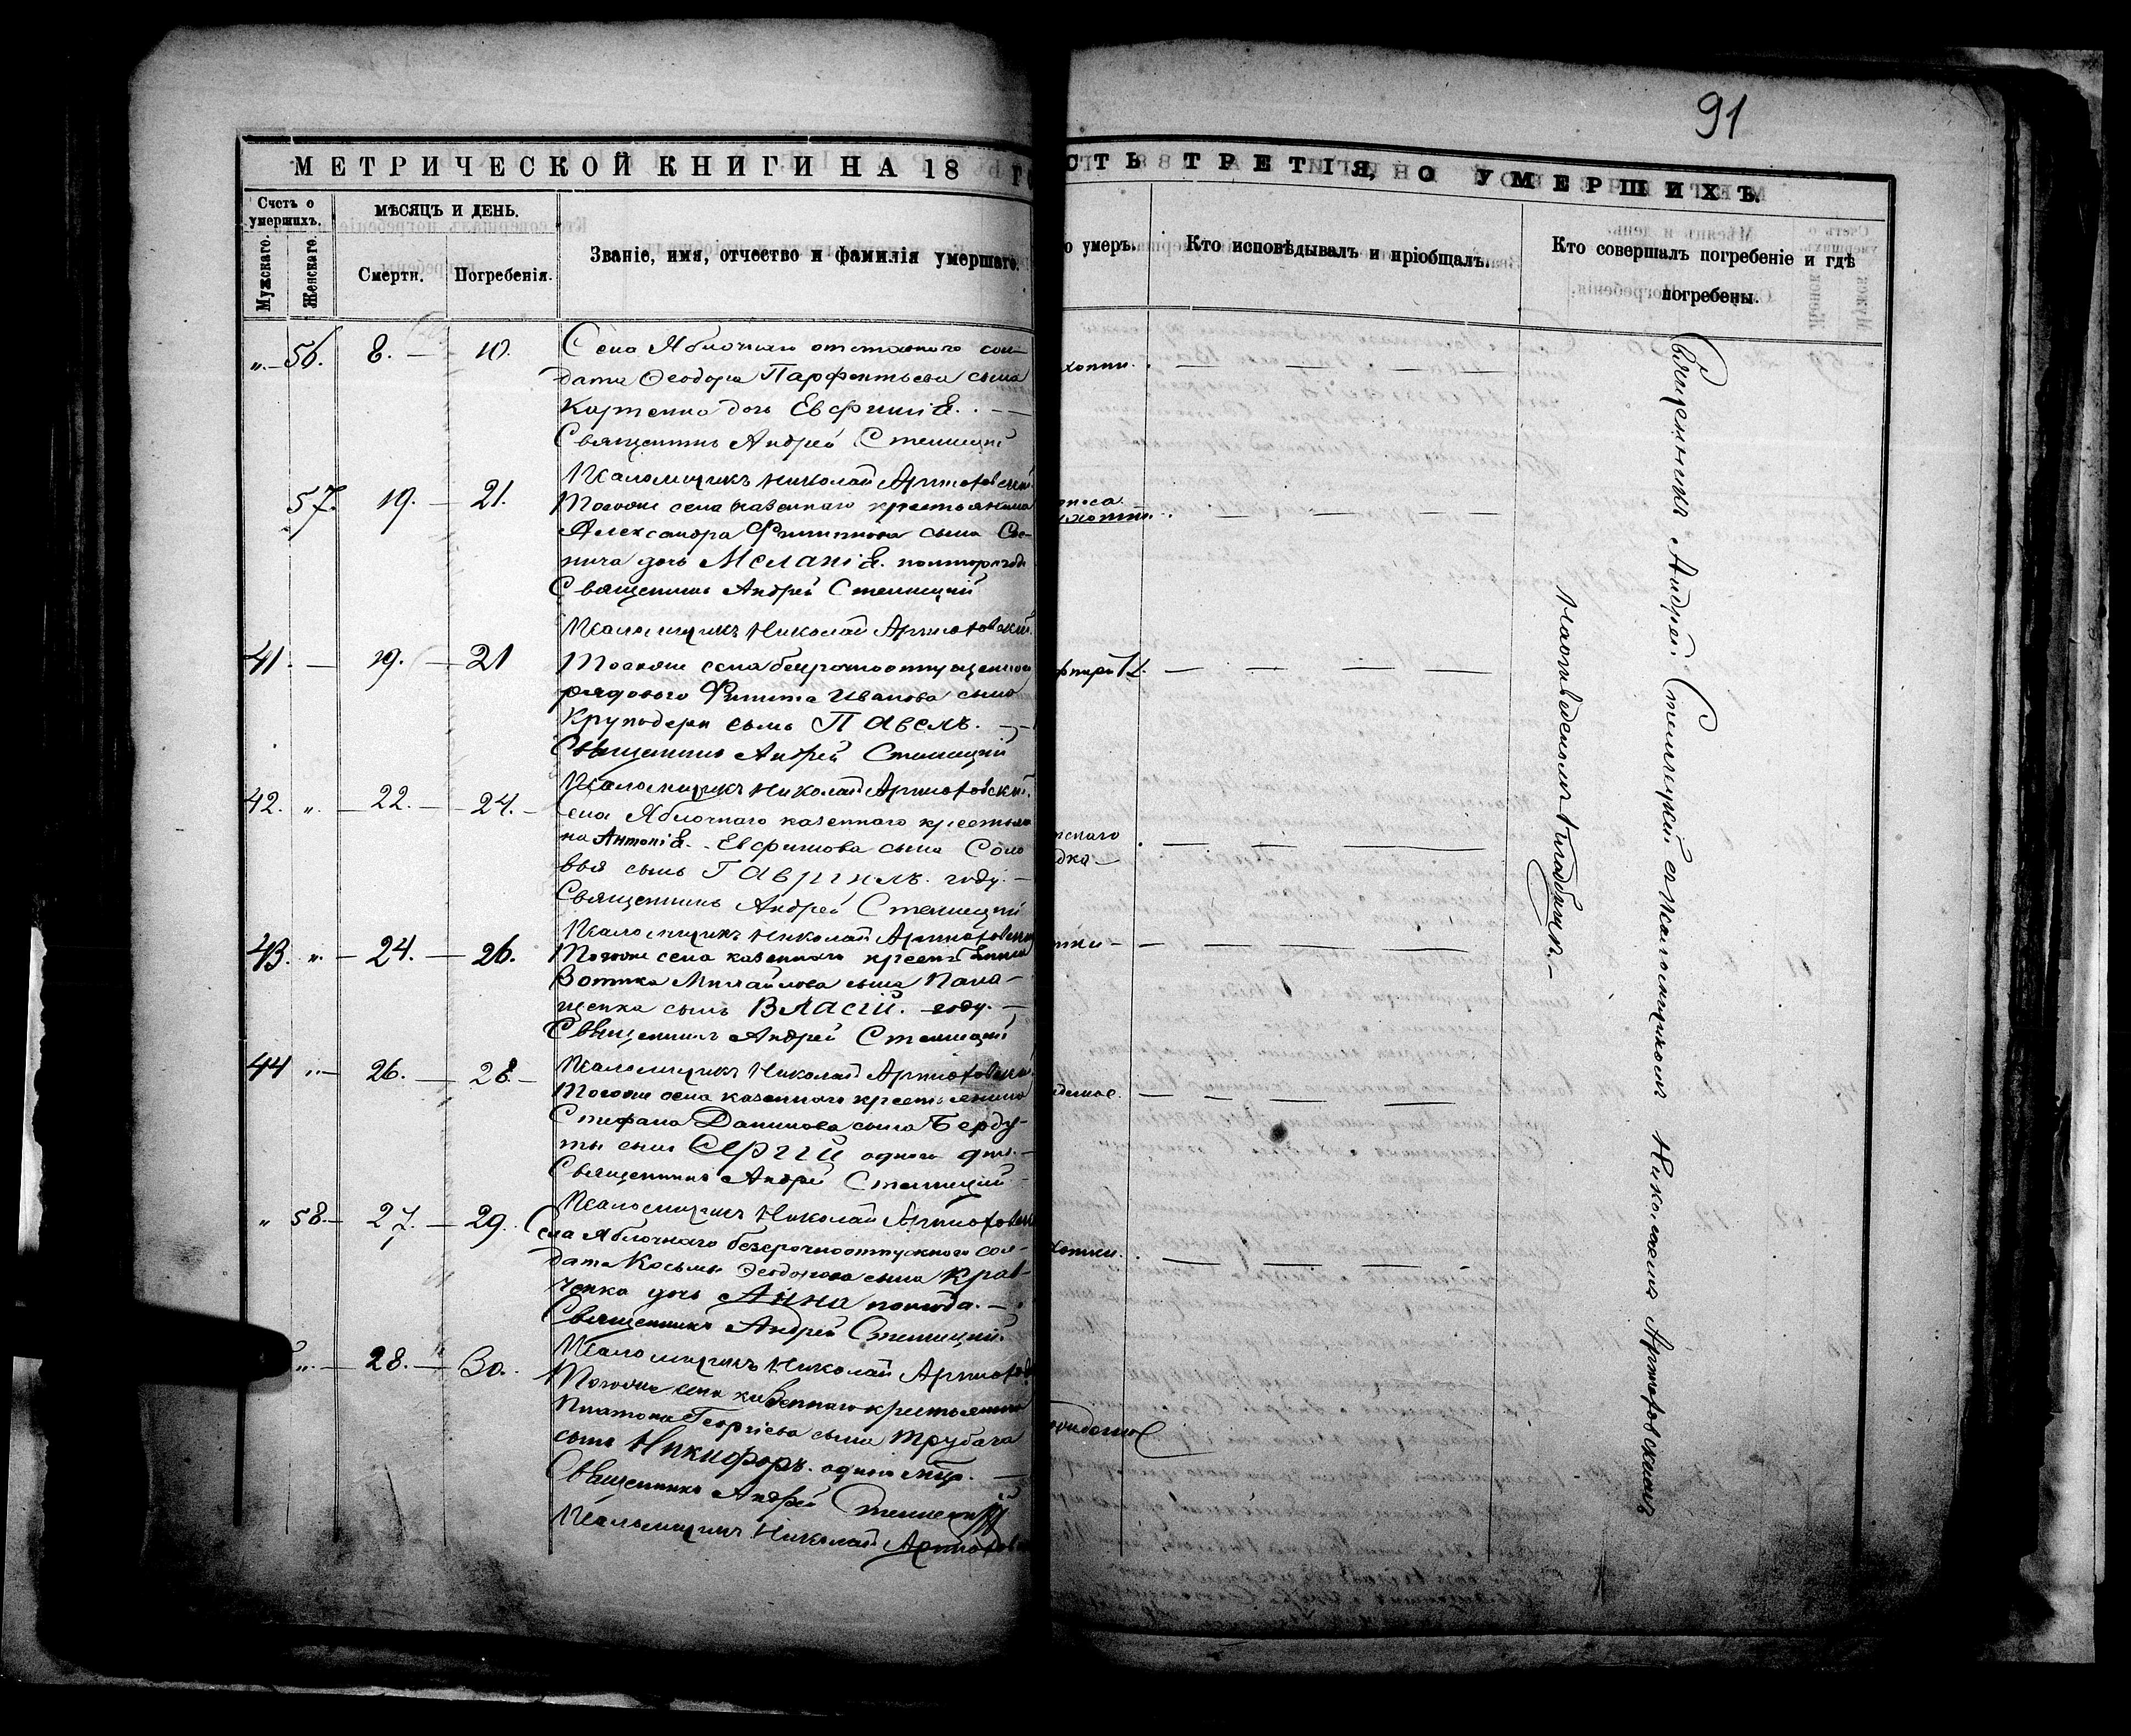 91
МЕТРИЧЕСКОЙ КНИГИ НА 18 ГО
СТЬ ТРЕТІЯ, О УМЕРШИХЪ.
Счетъ о умершихъ.
Мужскаго.
Женскаго.
МѢСЯЦЪ И ДЕНЬ.
Смерти.
Погребенія.
Званіе, имя, отчество и фамилія умершаго.
о умеръ.
Кто исповѣдывалъ и пріобщалъ.
Кто совершалъ погребеніе и гдѣ
погребены.
„ 56. 8. 10. Села Яблочнаго отставнаго сол-
дата Ѳеодора Парфентьева сына
дочь Евфимія.
Священникъ Андрей Стеллецкій
Псаломщикъ Николай Артюховскій
57. 19. 21. Тогоже села казеннаго крестьянина
Александра Филиппова сына
дочь Меланія.
Священникъ Андрей Стеллецкій
Псаломщикъ Николай Артюховскій
41. 19. 21 Тогоже села безсрочноотпущеннаго
рядового Филипа Иванова сына
Круподери сынъ Павелъ.
Священникъ Андрей Стеллецкій
Псаломщикъ Николай Артюховскій
42. „ 22. 24. Села Яблочнаго казеннаго крестьяни
на Антонія Евфимова сына Соло
вья сынъ Гавріилъ. году.
Священникъ Андрей Стеллецкій
Псаломщикъ Николай Артюховскій
43. „ 24. 26. Тогоже села казеннаго крестьянина
Михайлова сына Пана-
щенка сынъ Власій. году.
Священникъ Андрей Стеллецкій
Псаломщикъ Николай Артюховскій
44 „ 26. 28. Тогоже села казеннаго крестьянина
Стефана Данилова сына Берду-
ты сынъ Сергій одного дня.
Священникъ Андрей Стеллецкій
Псаломщикъ Николай Артюховскій
„ 58. 27. 29. Села Яблочнаго безсрочноотпускного сол-
дата Косьмы Ѳеодорова сына Крав-
ченка дочь Анна полгода.
Священникъ Андрей Стеллецкій
Псаломщикъ Николай Артюхов
„ 28. 30. Тогоже села казеннаго крестьянина
Платона Георгіева сына Трубача
сынъ Никифоръ. одного
Священникъ Андрей Стеллецкій
Псаломщикъ Николай Артюхов
Священникъ Андрей Стеллецкій съ псаломщикомъ Николаемъ Артюховскимъ
кладбищѣ.